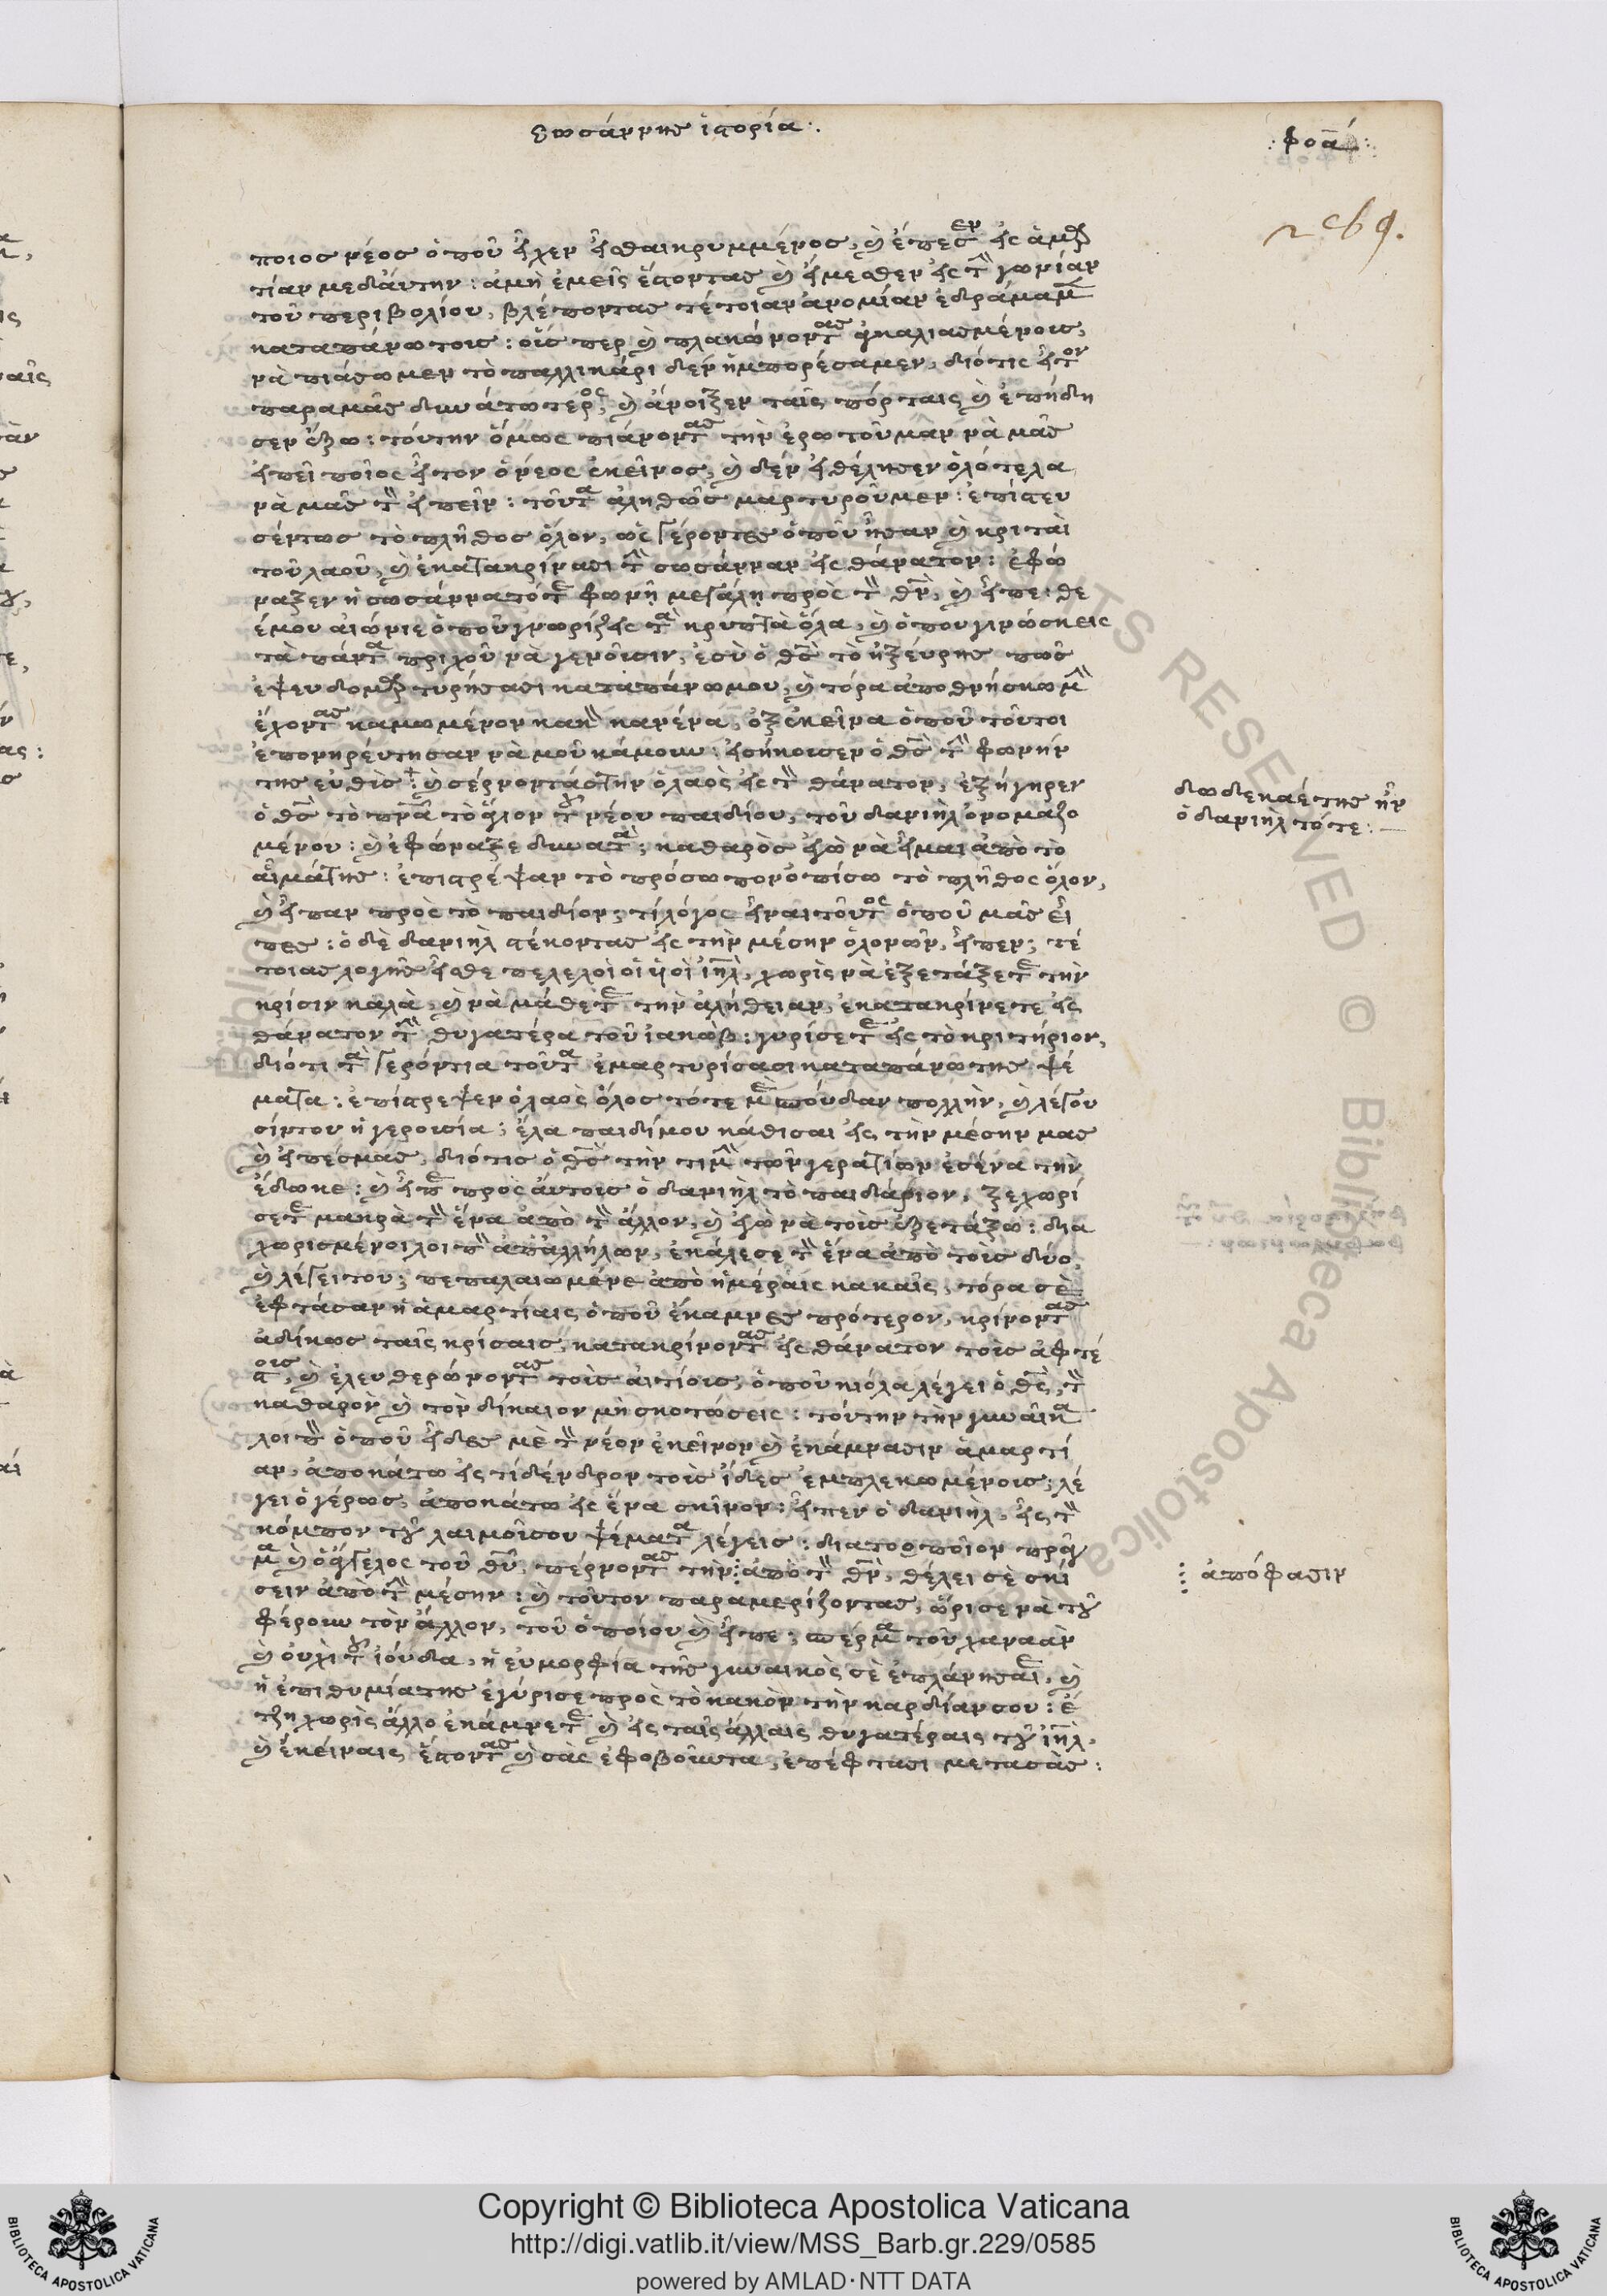 σωσάννης ἱστορία:.
:φοά:
269.
ποιος νέος ὁποῦ εἶχεν εἶσθαι κρυμμένος, καὶ ἔπεσεν εἰς ἁμαρ
τίαν μεδάυτην: ἀμὴ ἐμεῖς ἔστοντας καὶ εἴμεσθεν εἰς τὴν γωνίαν
τοῦ περιβολίου, βλέποντας τέτοιαν ἀνομίαν ἐδράμαμεν
καταπάνωτοις: οἷς περ καὶ πλακώνοντας ἀγκαλιασμένοις,
νὰ πιάσωμεν τὸ παλλικάρι δεν ἠμπορέσαμεν, διότις εἶτον
παραμᾶς δυνάτωτερος, καὶ ἄνοιξεν ταῖς πόρταις καὶ ἐπήδη
σεν ἔξω: τόυτην ὅμως πιάνοντας τὴν ἐρωτοῦμαν νὰ μᾶς
εἰπεῖ ποῖος εἶτον ὁ νέος ἐκεῖνος, καὶ δέν εἰθέλησεν ὁλότελα
νὰ μᾶς τὸν εἰπεῖν: τοῦτα ἀληθῶς μαρτυροῦμεν: ἐπίστευ
σέντως τὸ πλῆθος ὅλον, ὡς γέροντες ὁποῦ ἦσαν καὶ κριταὶ
τοῦ λαοῦ, καὶ ἐκατακρίνασι τὴν σωσάνναν εἰς θάνατον: ἐφώ
ναξεν ἡ σωσάννα τότε φωνῇ μεγάλῃ πρὸς τὸν θν, καὶ εἶπε: θε
έμου αἰώνιε ὁποῦ γνωρίζεις τὰ κρυπτὰ ὅλα, καὶ ὁπου γινώσκεις
τὰ πάντα πριχοῦ νὰ γενοῦσιν, ἐσὺ ὁ θς τὸ ἠξεύρης πῶς
ἐψευδομαρτύρησασι καταπάνωμου, καὶ τόρα ἀποθνήσκω μὴν
ἔχοντας καμωμένον κανὴν κανένα, ὀξ ἐκεῖνα ὁποῦ τοῦτοι
ἐπονηρέυτησαν νὰ μοῦ κάμουν: εἰσήκουσεν ὁ θς τὴν φωνήν
της εὐθὶς: καὶ σέρνοντάς την ὁ λαὸς εἰς τὸν θάνατον, ἐξήγηρεν
ὁ θς τὸ πνα τὸ ἅγιον τοῦ νέου παιδίου, τοῦ δανιὴλ ὀνομαζο
μένου: καὶ ἐφώναξε δυνατὰ; καθαρὸς ἐγὼ νὰ εἶμαι ἀπὸ τὸ
αἷμάτης: ἐπιστρέψαν τὸ πρόσωπον ὀπίσω τὸ πλῆθος ὅλον,
καὶ εἶπαν πρὸς τὸ παιδίον; τί λόγος εἶναι τοῦτος ὁποῦ μᾶς εἶ
πες: ὁ δὲ δανιὴλ στέκοντας εἰς τὴν μέσην ὁλονῶν, εἶπεν; τέ
τοιας λογῆς εἶσθε πελελοὶ οἱ ὑοὶ ιηλ, χωρὶς νὰ ἐξετάξετε τὴν
κρίσιν καλὰ, καὶ νὰ μάθετε τὴν ἀλήθειαν, ἐκατακρίνετε εἰς
θάνατον τὴν θυγατέρα τοῦ ἰακώβ: γυρίσετε εἰς τὸ κριτήριον,
διότι τὰ γερόντια τοῦτα ἐμαρτυρίσασι καταπάνω της ψέ
ματα: ἐπίστρεψεν ὁ λαὸς ὅλος τότε μὲ σπόυδαν πολλὴν, καὶ λέγου
σίντου ἡ γερουσία; ἔλα παιδίμου κάθισαι εἰς τὴν μέσην μας
καὶ εἰπέσμας, διότις ὁ θς τὴν τιμὴν τῶν γερατίων ἐσένα τὴν
ἔδωκε: καὶ εἶπε πρὸς ἀυτους ὁ δανιὴλ τὸ παιδάριον, ξεχωρί
σετε μακρὰ τὸν ἕνα ἀπὸ τὸν ἄλλον, καὶ ἐγὼ νὰ τοὺς ἐξετάξω: δια
χωρισμένοι λοιπὸν ἀπἀλλήλων, ἐκάλεσε τὸν ἕνα ἀπὸ τοὺς δύο,
καὶ λέγει του; πεπαλαιωμένε ἀπὸ ἡμέραις κακαῖς, τόρα σὲ
ἐφτάσαν ἡ ἁμαρτίαις ὁποῦ ἔκαμνες πρότερον, κρίνοντας
ἀδίκως ταῖς κρίσαις, κατακρίνοντας εἰς θάνατον τοὺς ἀφτέ
στους, καὶ ἐλευθερώνοντας τοὺς ἀιτίους, ὁποῦ κιόλα λέγει ὁ θς, τὸν
καθαρὸν καὶ τὸν δίκαιον μὴ σκοτώσεις: τόυτην τὴν γυναῖκα
λοιπὸν ὁποῦ εἶδες μὲ τὸν νέον ἐκεῖνον καὶ ἐκάμνασιν ἁμαρτί
αν, ἀποκάτω εἰς τί δένδρον τοὺς ἴδες ἐμπλεκωμένους; λέ
γει ὁ γέρως, ἀποκάτω εἰς ἕνα σκῖνον: εἶπεν ὁ δανιὴλ, εἰς τὸν
κόμπον τοῦ λαιμοῦσου ψέματα λέγεις: διατο ὁποῖον πρᾶγ
μα καὶ ὁ ἄγγελος τοῦ θυ, πέρνοντας τὴν ἀπὸ τὸν θν, θέλει σὲ σκί
σειν ἀπὸ τὴν μέσην: καὶ τοῦτον παραμερίζοντας, ὥρισε νὰ τοῦ
φέρουν τὸν ἄλλον, τοῦ ὁποίου καὶ εἶπε; σπέρμα τοῦ χαναὰν
καὶ ὀυχὶ τοῦ ἰόυδα, ἡ ἐυμορφία τῆς γυναικὸς σὲ ἐπλάνησαε, καὶ
ἡ ἐπιθυμία της ἐγύρισε πρὸς τὸ κακὸν τὴν καρδίαν σου: ἐ
τζη χωρὶς ἄλλο ἐκάμνετε καὶ εἰς ταῖς ἄλλαις θυγατέραις τοῦ ιηλ,
καὶ ἐκείναις ἔστοντας καὶ σὰς ἐφοβοῦντα, ἐπέφτασι μετασᾶς:
δωδεκαέτης ἦν
ὁ δανιὴλ τότε:—
ἀπόφασιν
Copyright © Biblioteca Apostolica Vaticana
http://digi.vatlib.it/view/MSS_Barb.gr.229/0585
powered by AMLAD·NTT DATA
BIBLIOTECA APOSTOLICA VATICANA
BIBLIOTECA APOSTOLICA VATICANA